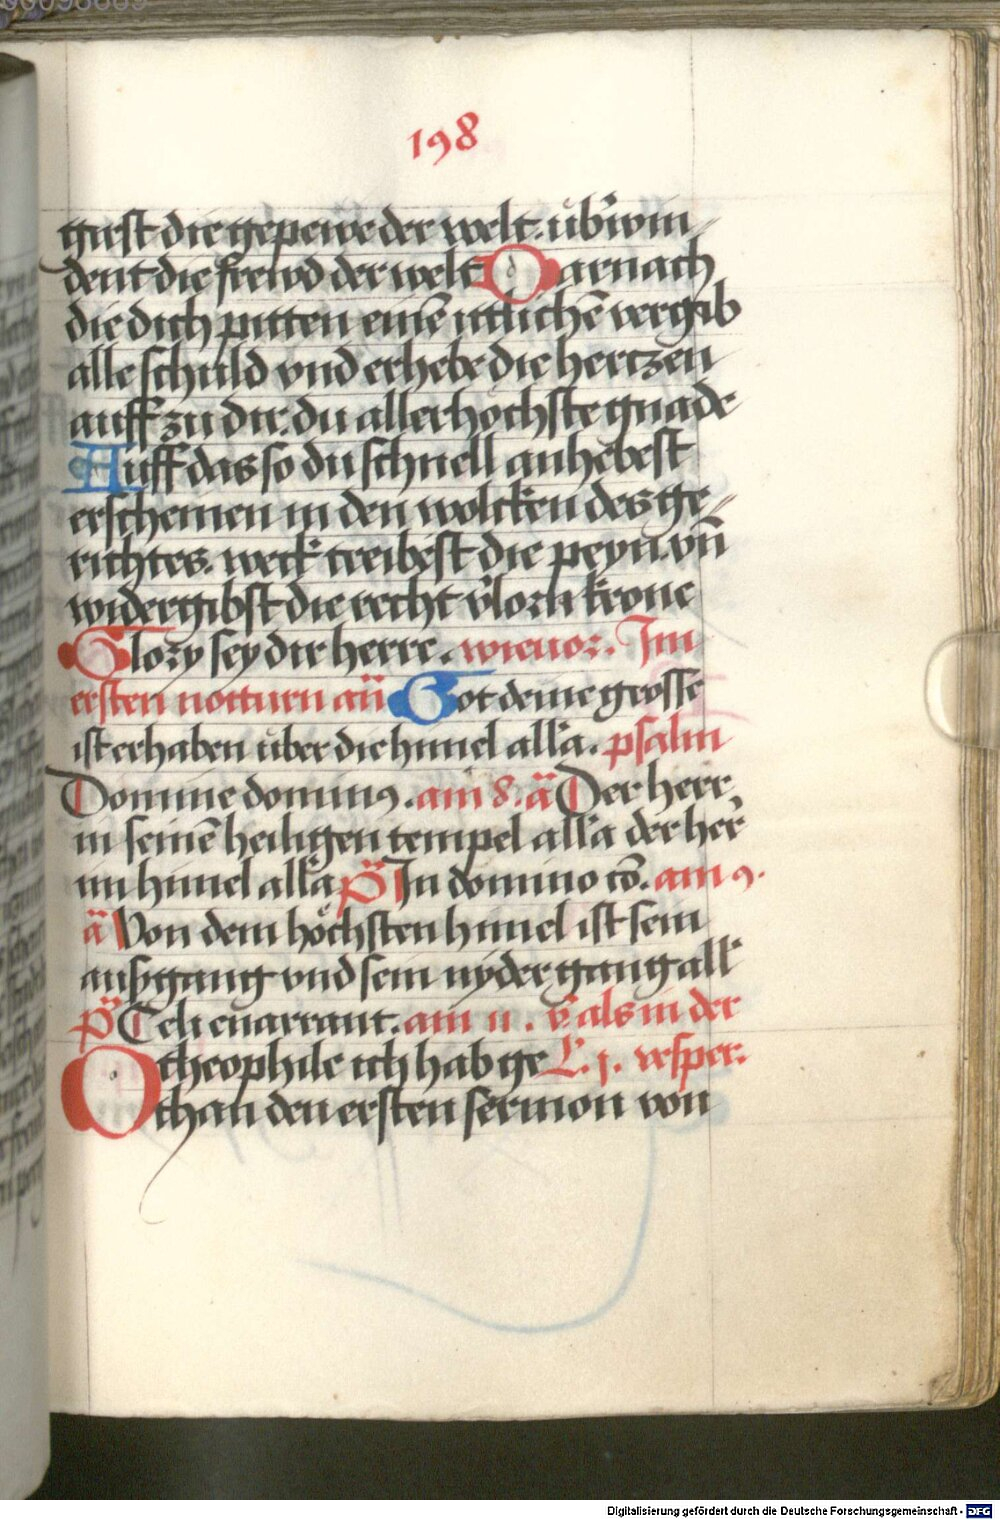 198
girst die gepewe der welt. ub'win⸗
dent die frewd der welt Darnach
die dich pitten einē itlichē vergib
alle schuld vnd erhebe die hertzen
auff zu dir. du allerhöchste gnade
Auff das so du schnell anhebest
erscheinen in den wolcken des ge⸗
richtes. weck treibest die peyn. vñ
widergibst die recht v'lorn krone
Glory sey dir herre. wieuor. Im
ersten notturn añ Got deine grosse
ist erhaben über die himel all'a. psalm
Domine dominꝰ. am 8. ā Der herr
in seinē heiligen tempel all'a der her'
im himel all'a P̄s In domino cō. am 9.
ā Von dem höchsten himel ist sein
außgang vnd sein nyder gang all'
P̄s Celi enarrant. am 11. v̄ als in der
O theophile ich hab ge L. j. vesper.
than den ersten sermon von
Digitalisierung gefördert durch die Deutsche Forschungsgemeinschaft - DFG